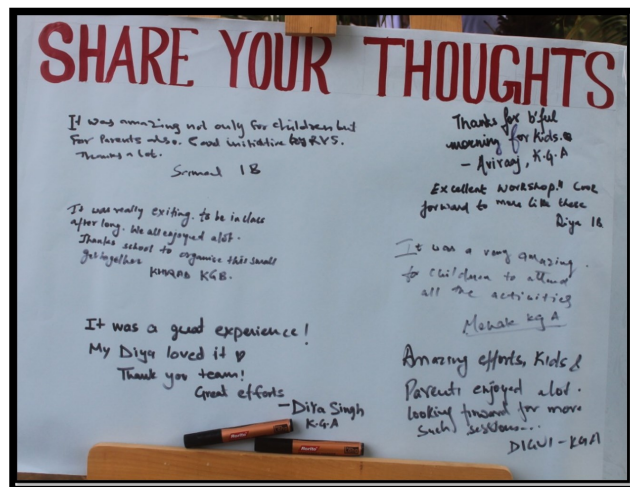 SHARE YOUR THOUGHTS
It was amazing not only for children but
For Parents also. Good initiative by RVS.
Thanks a lot.
1B
It was really exiting. to be in class
after long. We all enjoyed alot.
Thanks school to organise this small
get together
KGB.
It was a great experience!
My Diya loved it
Thank you team!
Great efforts
- Diya Singh
K.G.A
Thanks for b'ful
morning for kids.
- Aviraaj, K.G.A
Excellent workshop!! Look
forward to more like these
Diya 1B
It was a very amazing.
to children to attend
all the activities
KGA
Amazing efforts, Kids &
Parents enjoyed alot.
looking forward for more
such session...
DIGVI - KGA